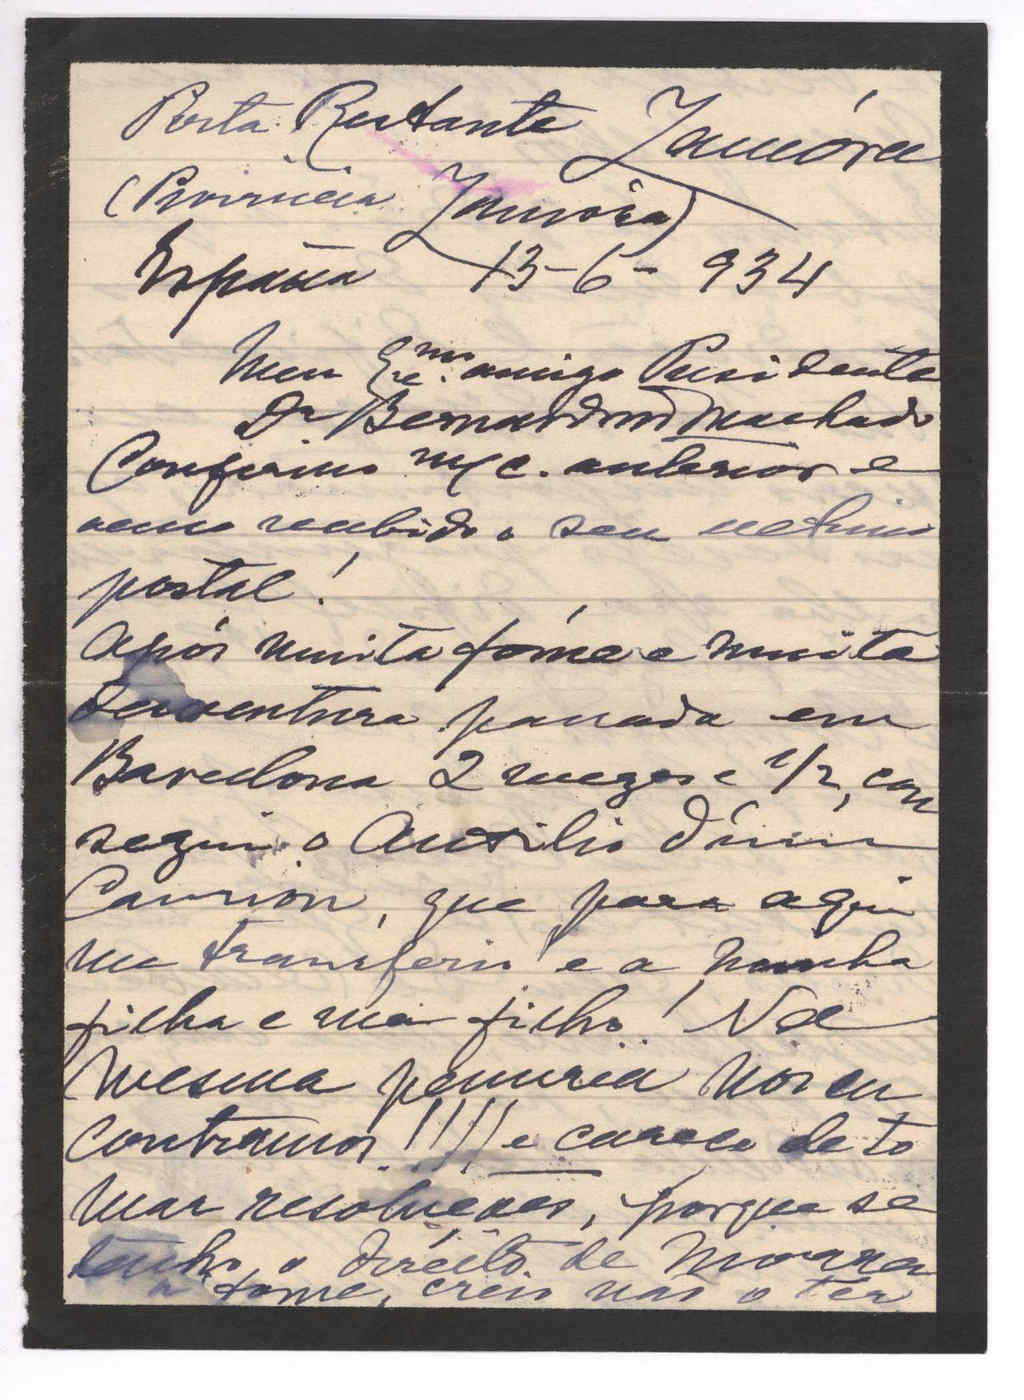 Posta Restante Zamóra
(Provincia Zamóra)
España 13-6-934
Meu Exe.mo amigo Presidente
Dr Bernardino Machado
Confirmo m/c. anterior e
acuso recebido o seu ultimo
postal!
Após muita fóme e muita
desventura passada em
Barcelona 2 mezes e 1/2, con
segui o Auxilio d'um
Camion, que para aqui
me transferiu e a minha
filha e meu filho! Na
mesma penuria nos en
contramos!!!! e careço de to
mar resoluções, porque se
tenho o direito de morrer
a fome, creio não o ter